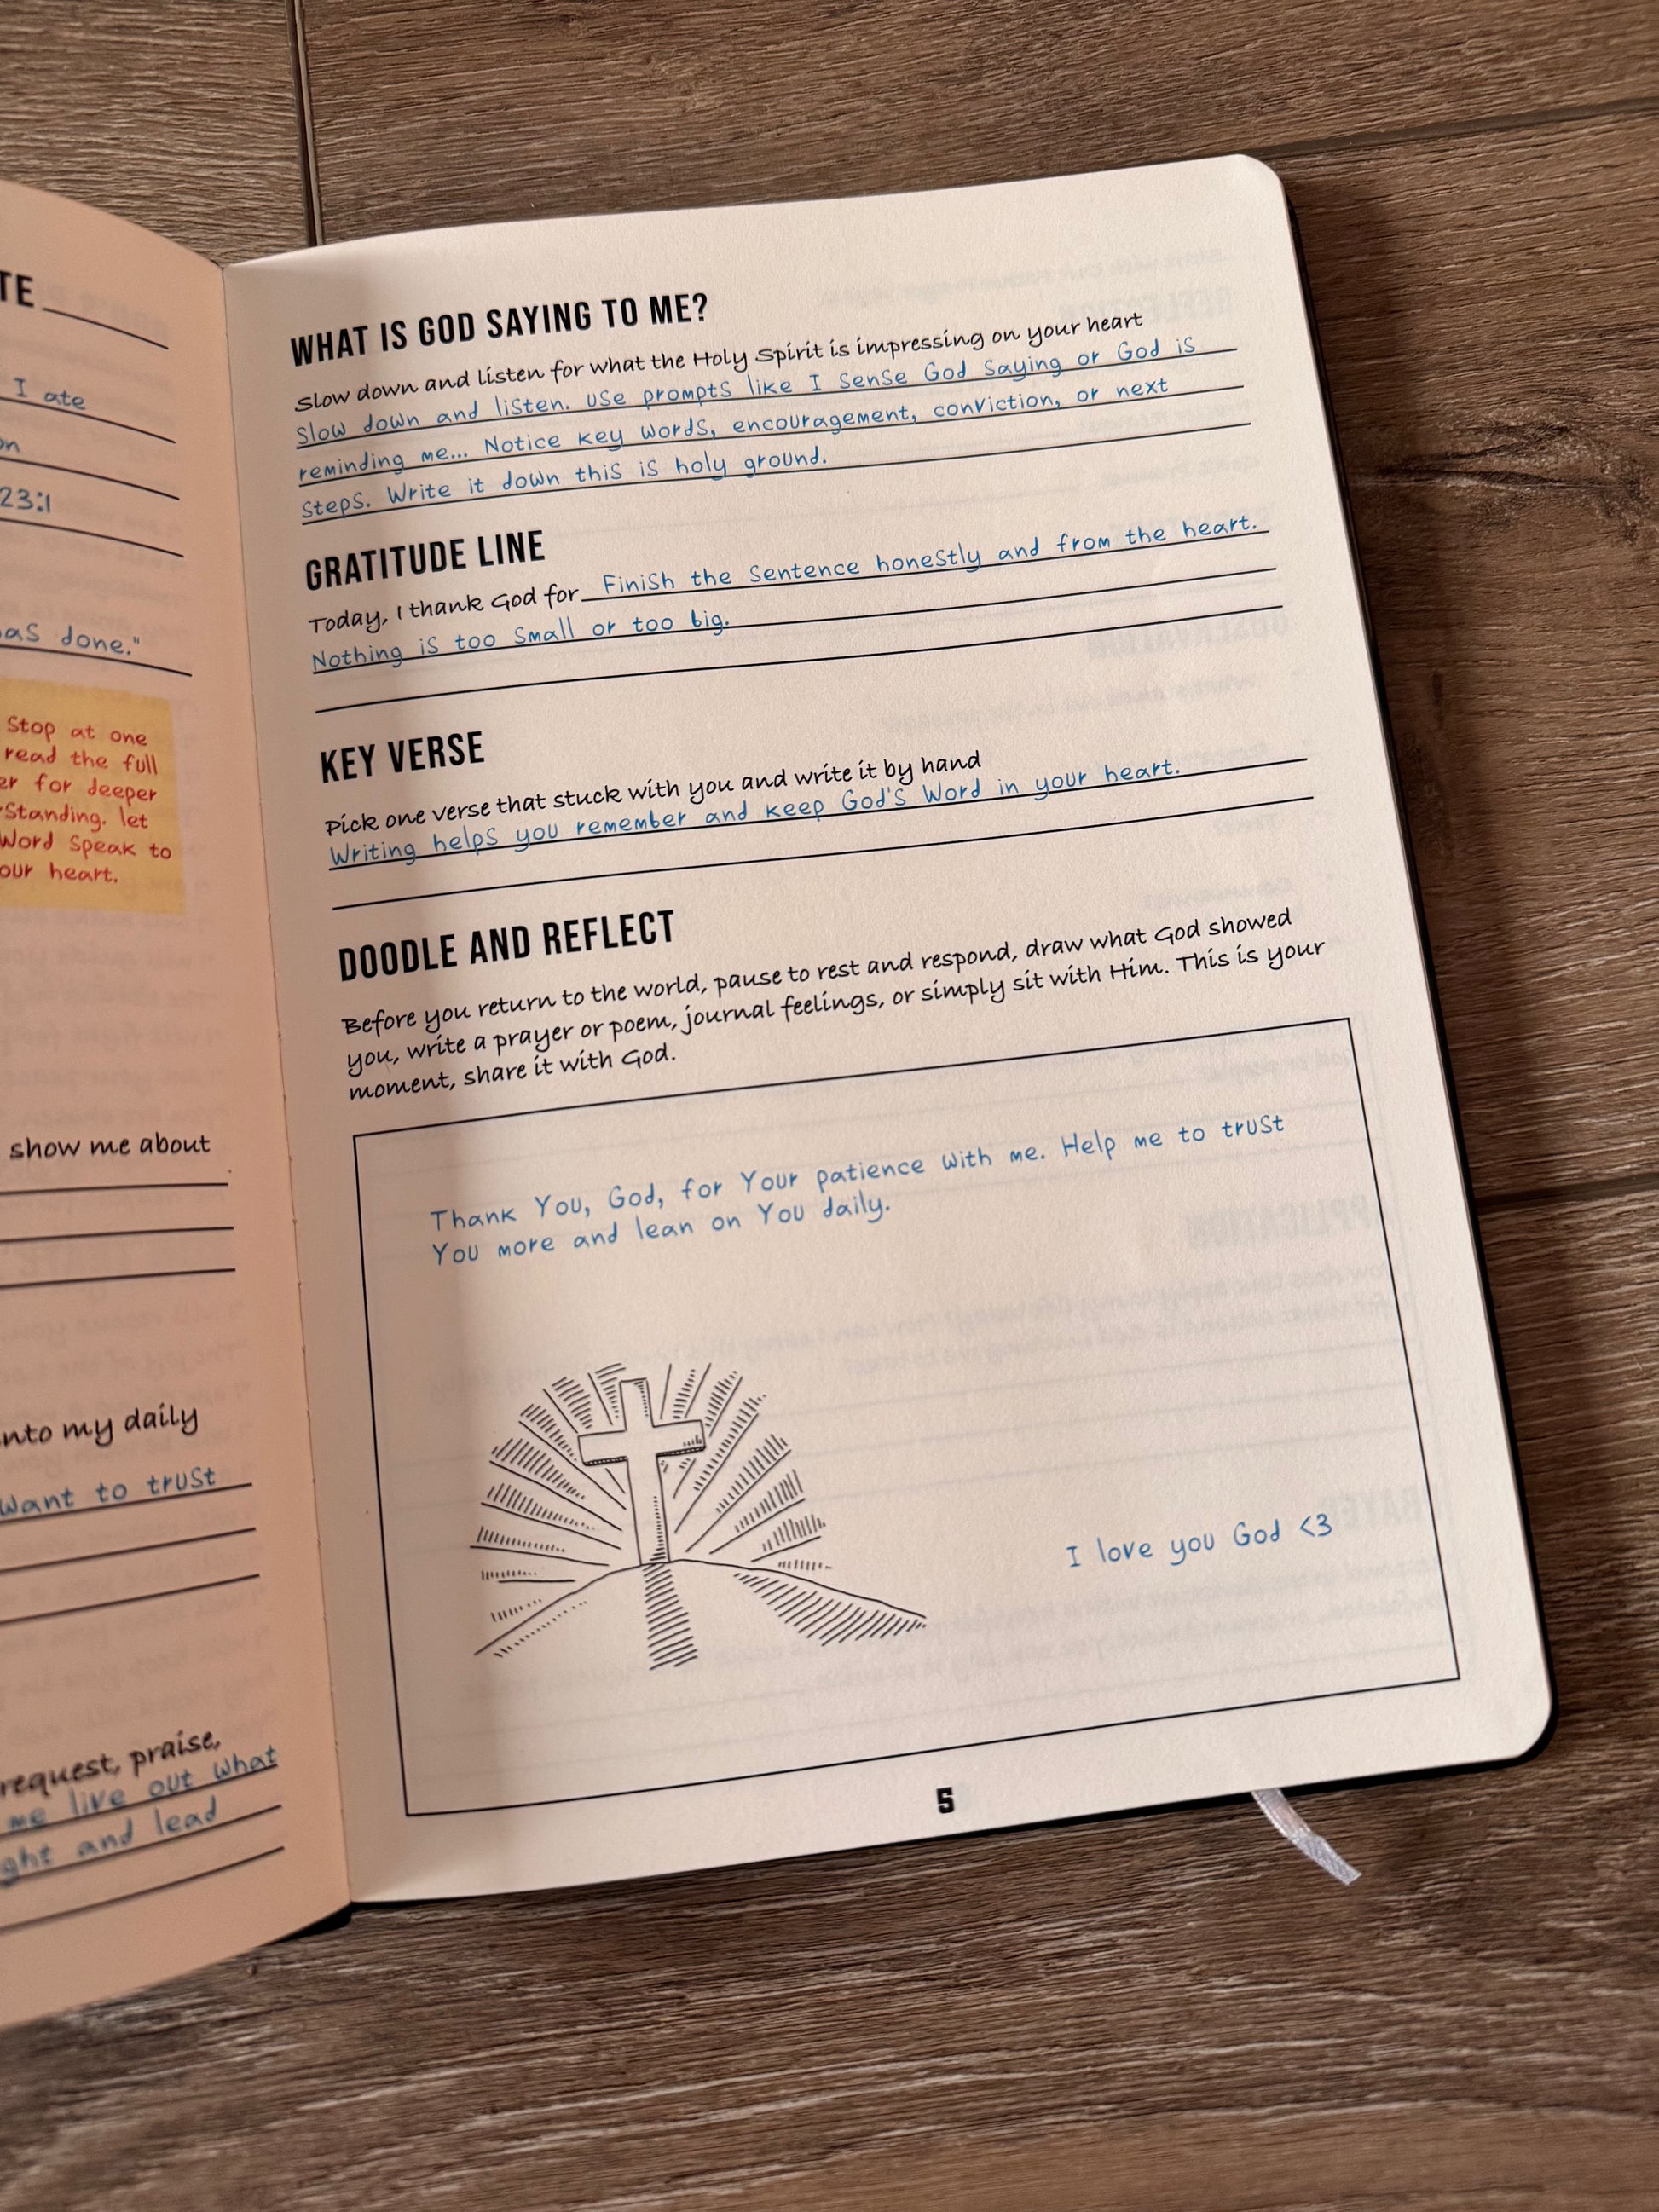 TE
I ate
23:1
as done."
Stop at one
read the full
er for deeper
Standing. let
Word Speak to
our heart.
show me about
nto my daily
Want to trust
request, praise,
me live out what
ght and lead
WHAT IS GOD SAYING TO ME?
Slow down and listen for what the Holy Spirit is impressing on your heart
Slow down and listen. Use prompts like I sense God saying or God is
reminding me... Notice key words, encouragement, conviction, or next
steps. Write it down this is holy ground.
GRATITUDE LINE
Today, I thank God for Finish the sentence honestly and from the heart.
Nothing is too small or too big.
KEY VERSE
Pick one verse that stuck with you and write it by hand
Writing helps you remember and keep God's Word in your heart.
DOODLE AND REFLECT
Before you return to the world, pause to rest and respond, draw what God showed
you, write a prayer or poem, journal feelings, or simply sit with Him. This is your
moment, share it with God.
Thank You, God, for Your patience with me. Help me to trust
You more and lean on You daily.
I love you God <3
5